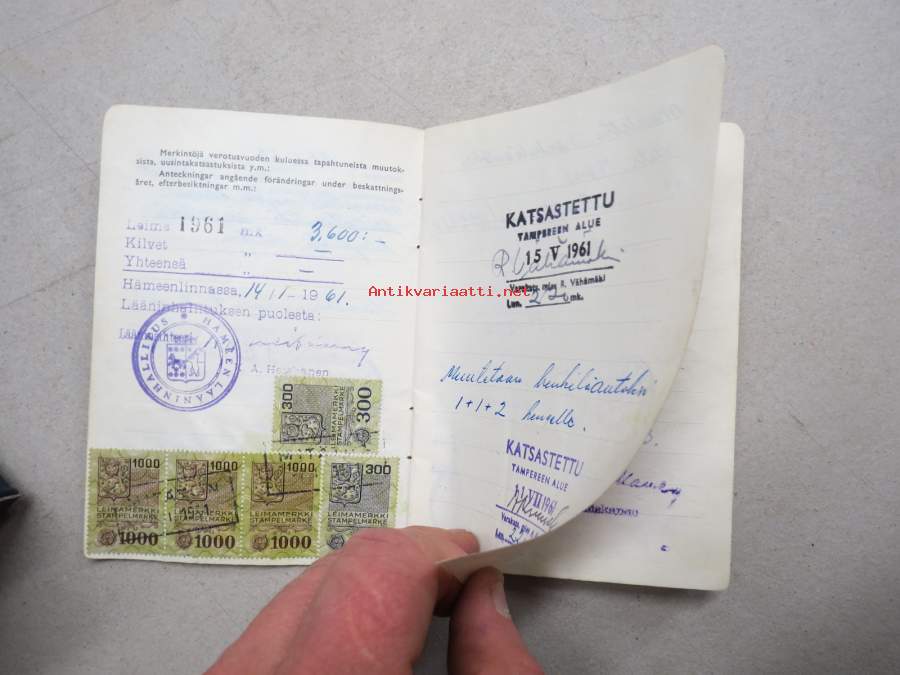 Merkintöjä verotusvuoden kuluessa tapahtuneista muutok-
sista, uusintakatsastuksista y.m.:
Anteckningar angående förändringar under beskattnings-
året, efterbesiktningar m.m.:
Leima 1961 mk 3.600:-
Kilvet " —
Yhteensä " —
Hämeenlinnassa, 14/1 - 1961.
Lääninhallituksen puolesta:
HÄMEEN LÄÄNINHALLITUS
A.
300
LEIMAMERKKI
STÄMPELMÄRKE
300
1000
LEIMAMERKKI
STÄMPELMÄRKE
1000
1000
LEIMAMERKKI
STÄMPELMÄRKE
1000
1000
LEIMAMERKKI
STÄMPELMÄRKE
1000
300
LEIMAMERKKI
STÄMPELMÄRKE
KATSASTETTU
TAMPEREEN ALUE
15 V 1961
R Vähämäki
Verokats. mies R. Vähämäki
Lun. mk.
Antikvariaatti.net
Muutetaan henkilöautoksi
1+1+2 hengelle.
KATSASTETTU
TAMPEREEN ALUE
11 VII 1961